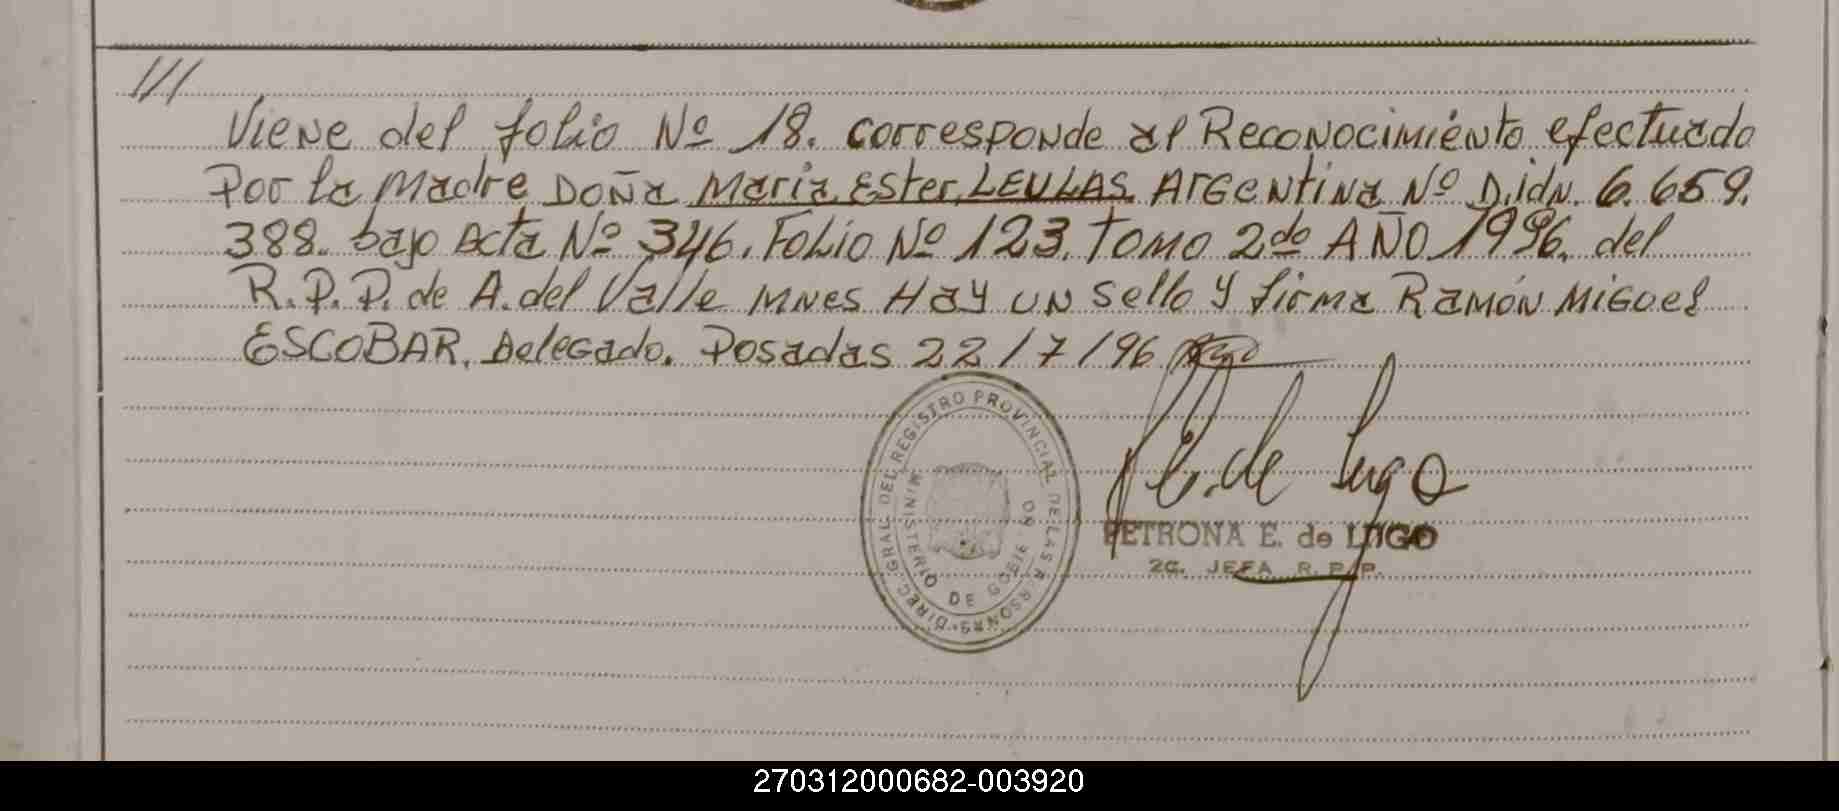 ///
Viene del folio Nº 18. corresponde al Reconocimiento efectuado
Por la Madre Doña Maria Ester LEULAS. Argentina Nº D.idn. 6.659.
388. bajo Acta Nº 346. Folio Nº 123. Tomo 2do AÑO 1996. del
R.P.P. de A. del Valle MNES Hay un sello y firma Ramón Miguel
ESCOBAR. Delegado. Posadas 22/7/96
DIREC. GRAL. DEL REGISTRO PROVINCIAL DE LAS PERSONAS
MINISTERIO DE GOBIERNO
P.E. de Lugo
PETRONA E. de LUGO
2a. JEFA R. P. P.
270312000682-003920